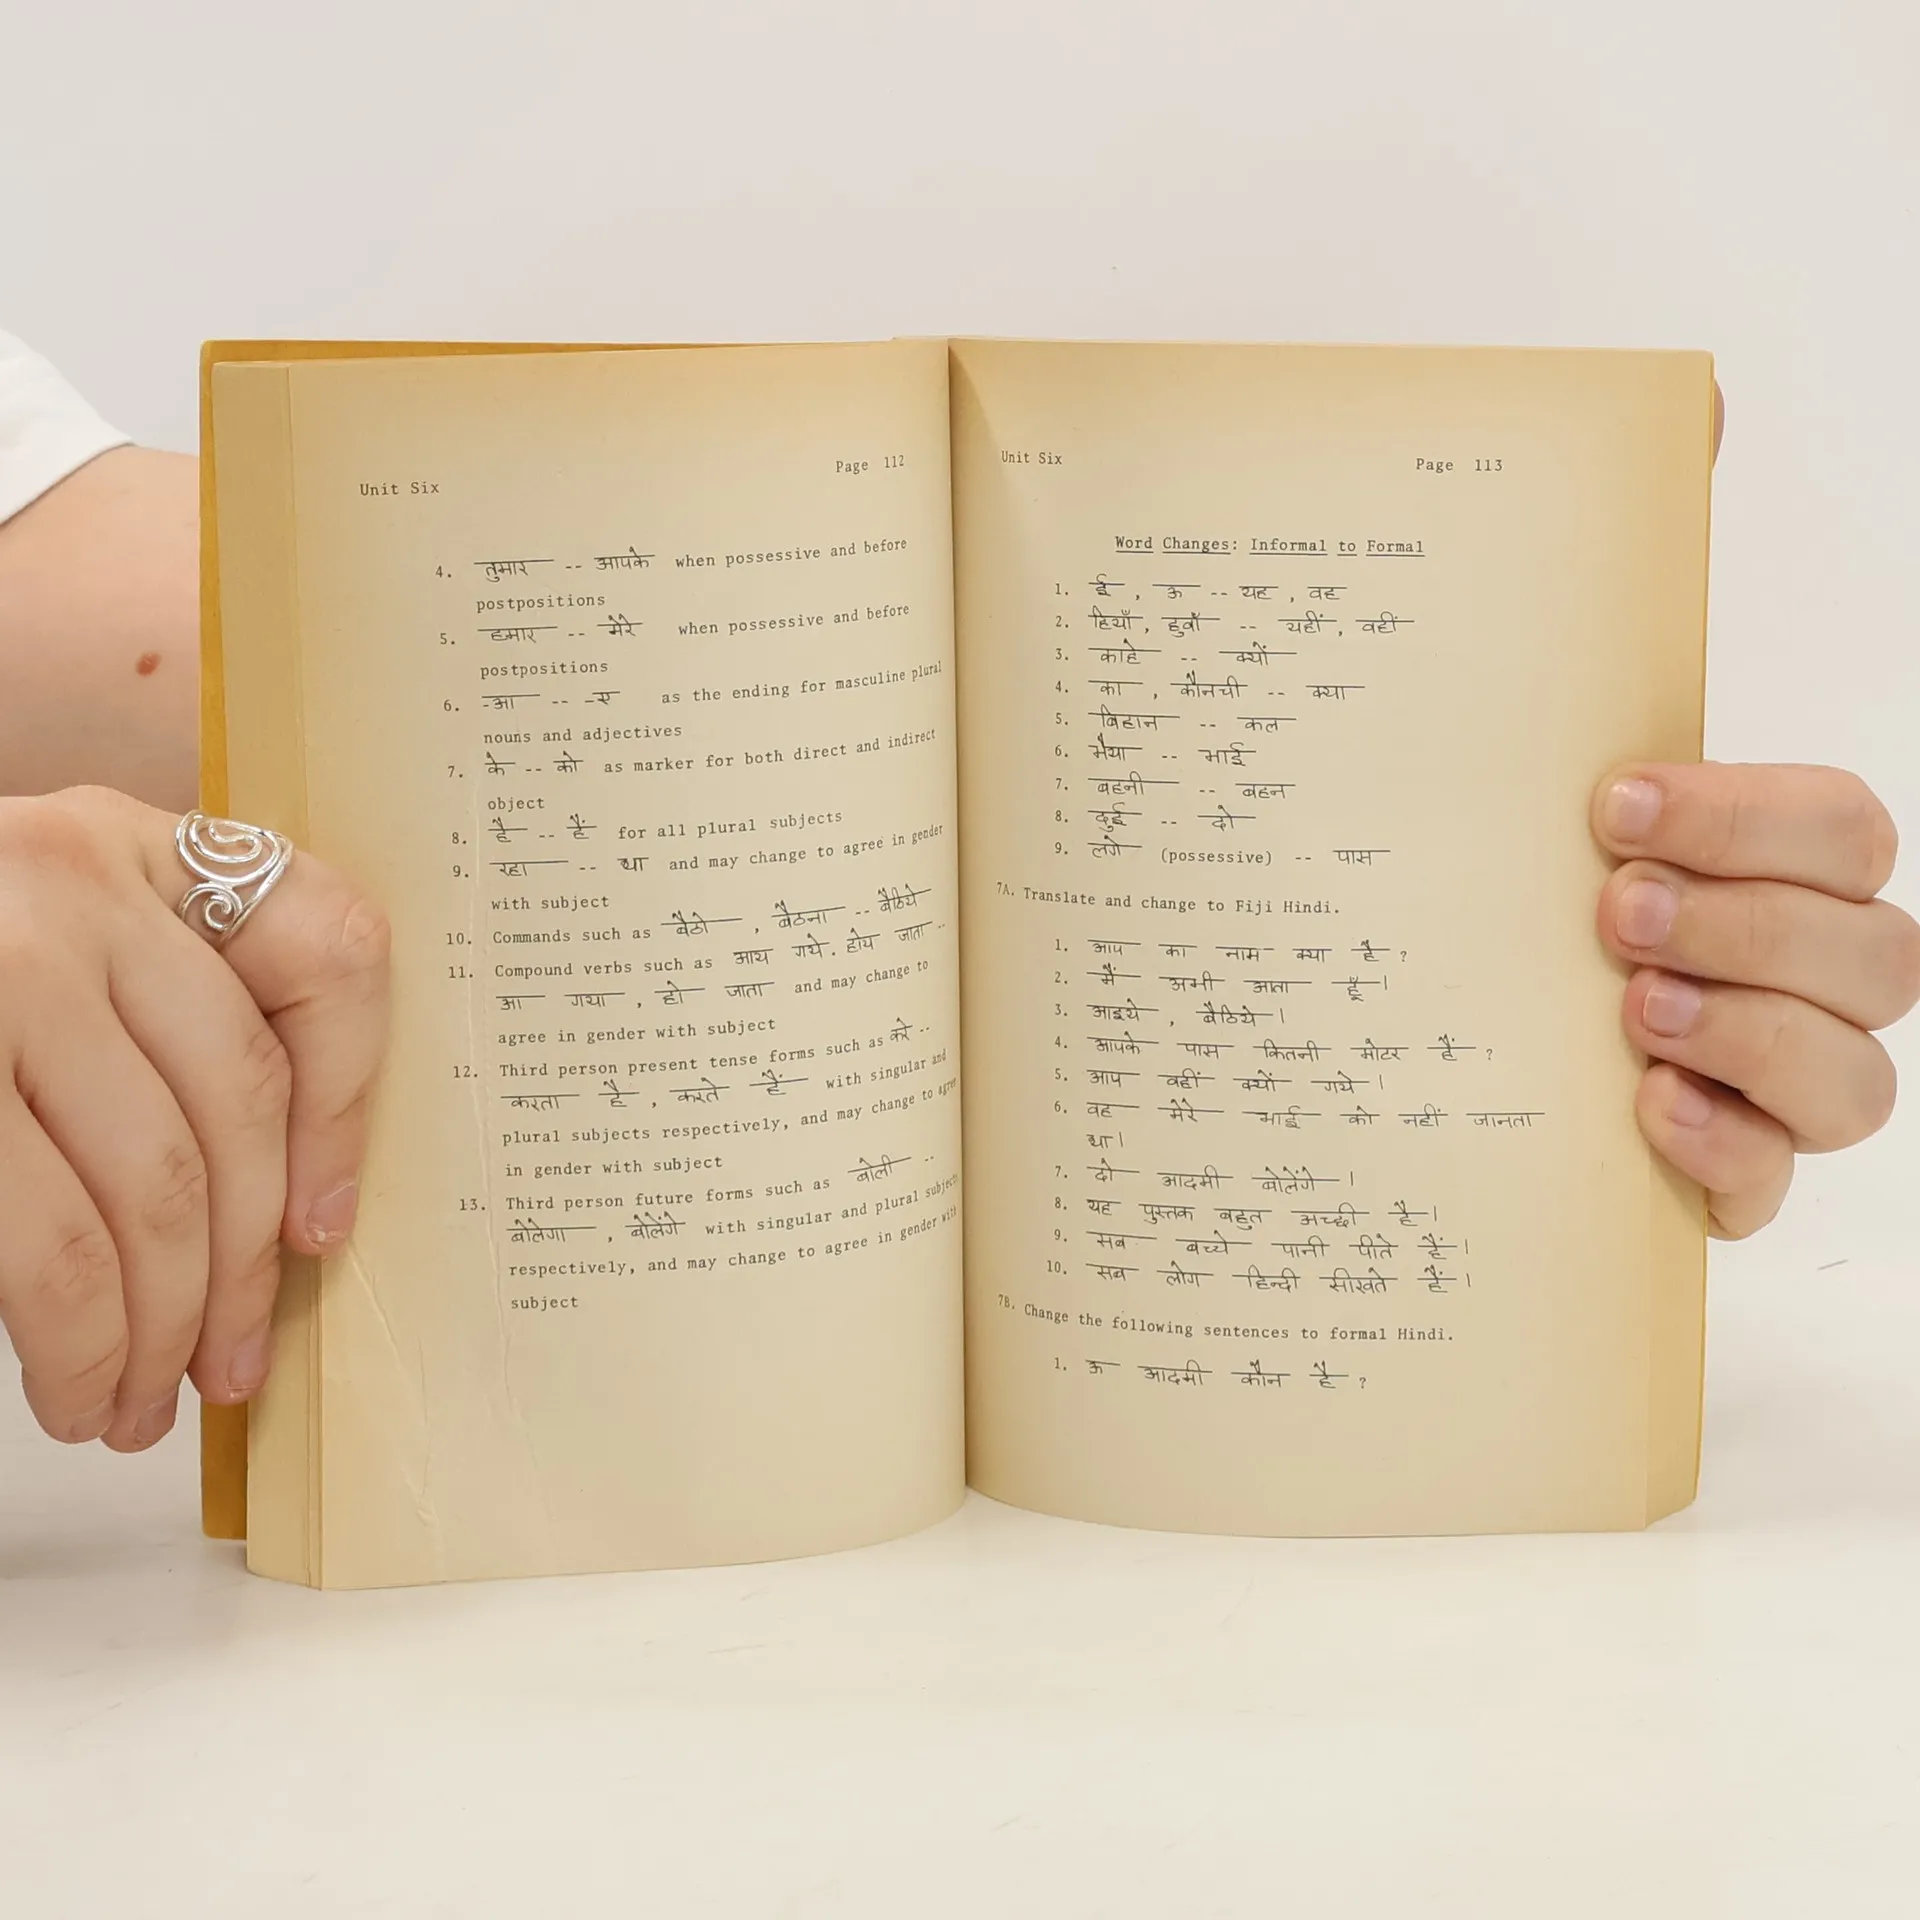 Unit Six
Page 112
4. तुमार -- आपके when possessive and before
postpositions
5. हमार -- मेरे when possessive and before
postpositions
6. -आ -- -ए as the ending for masculine plural
nouns and adjectives
7. के -- को as marker for both direct and indirect
object
8. है -- हैं for all plural subjects
9. रहा -- था and may change to agree in gender
with subject
10. Commands such as बैठो , बैठना -- बैठिये
11. Compound verbs such as आय गये . होय जाता --
आ गया , हो जाता and may change to
agree in gender with subject
12. Third person present tense forms such as करे --
करता है , करते हैं with singular and
plural subjects respectively, and may change to agree
in gender with subject
13. Third person future forms such as बोली --
बोलेगा , बोलेंगे with singular and plural subjects
respectively, and may change to agree in gender with
subject
Unit Six
Page 113
Word Changes: Informal to Formal
1. ई , ऊ -- यह , वह
2. हियाँ , हुवाँ -- यहीं , वहीं
3. काहे -- क्यों
4. का , कौनची -- क्या
5. बिहान -- कल
6. भैया -- भाई
7. बहनी -- बहन
8. दुई -- दो
9. लगे (possessive) -- पास
7A. Translate and change to Fiji Hindi.
1. आप का नाम क्या है ?
2. मैं अभी आता हूँ ।
3. आइये , बैठिये ।
4. आपके पास कितनी मोटर हैं ?
5. आप वहीं क्यों गये ।
6. वह मेरे भाई को नहीं जानता
था ।
7. दो आदमी बोलेंगे ।
8. यह पुस्तक बहुत अच्छी है ।
9. सब बच्चे पानी पीते हैं ।
10. सब लोग हिन्दी सीखते हैं ।
7B. Change the following sentences to formal Hindi.
1. ऊ आदमी कौन है ?